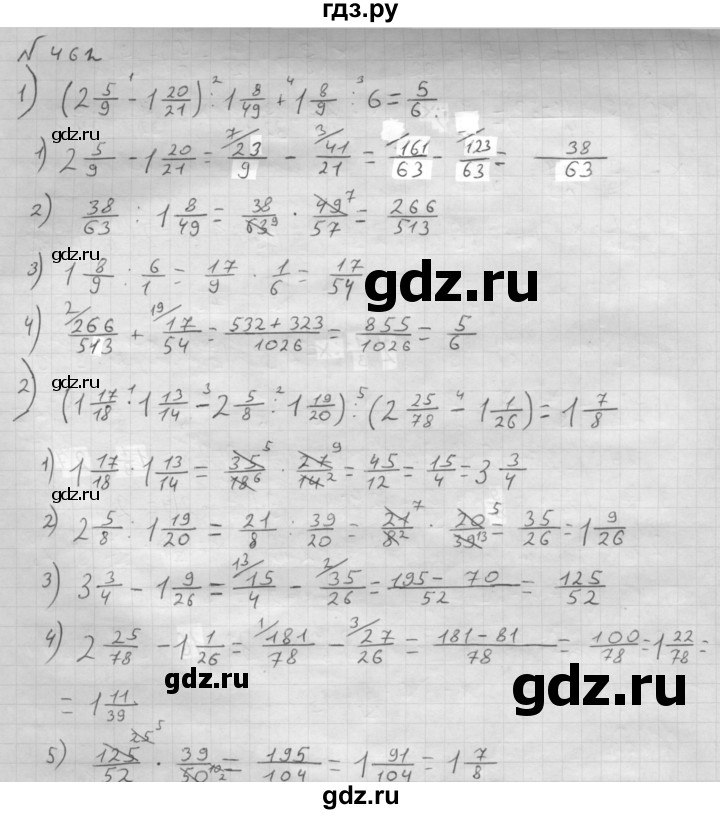 гдз.ру
№ 462
1) (2 5/9 - 1 20/21) : 1 8/49 + 1 8/9 : 6 = 5/6
gdz.ru
gdz.ru
1) 2 5/9 - 1 20/21 = 23/9 - 41/21 = 161/63 - 123/63 = 38/63
2) 38/63 : 1 8/49 = 38/63 · 49/57 = 266/513
gdz.ru
3) 1 8/9 : 6/1 = 17/9 · 1/6 = 17/54
gdz.ru
4) 266/513 + 17/54 = 532+323/1026 = 855/1026 = 5/6
gdz.ru
2) (1 17/18 · 1 13/14 - 2 5/8 : 1 19/20) : (2 25/78 - 1 1/26) = 1 7/8
gdz.ru
1) 1 17/18 · 1 13/14 = 35/18 · 27/14 = 45/12 = 15/4 = 3 3/4
2) 2 5/8 : 1 19/20 = 21/8 : 39/20 = 21/8 · 20/39 = 35/26 = 1 9/26
gdz.ru
3) 3 3/4 - 1 9/26 = 15/4 - 35/26 = 195 - 70/52 = 125/52
4) 2 25/78 - 1 1/26 = 181/78 - 27/26 = 181-81/78 = 100/78 = 1 22/78 =
gdz.ru
gdz.ru
= 1 11/39
5) 125/52 · 39/50 = 195/104 = 1 91/104 = 1 7/8
gdz.ru
gdz.ru